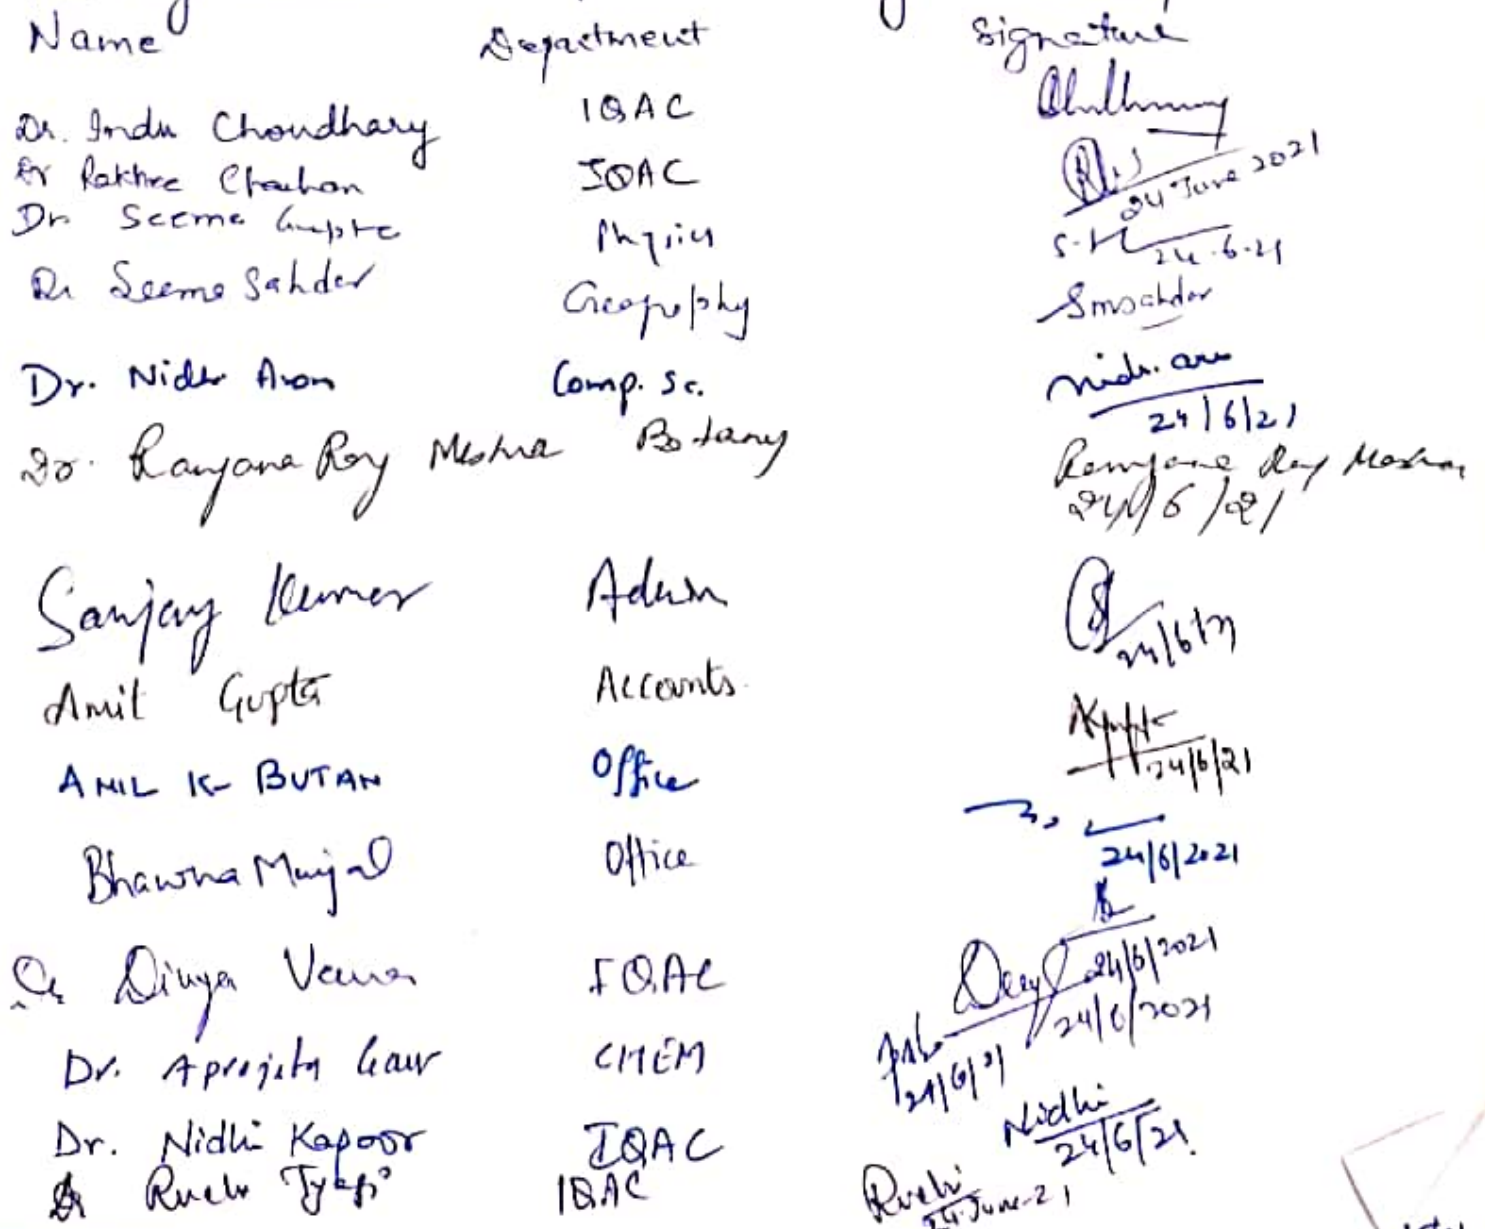 Name Department Signature
Dr. Indu Choudhary IQAC
Dr Rakhee Chauhan IQAC
24 June 2021
Dr Seema Gupta Physics
24.6.21
Dr Seema Sahdev Geography Smsahdev
Dr. Nidhi Arora Comp. Sc. Nidhi
24/6/21
Dr. Ranjana Roy Mishra Botany Ranjana Roy Mishra
24/6/21
Sanjay Kumar Admn
24/6/21
Amit Gupta Accounts
24/6/21
ANIL K BUTAN Office
24/6/2021
Bhawna Munjal Office
24/6/2021
Dr Divya Verma IQAC
24/6/2021
Dr. Aprajita Gaur CHEM
24/6/21
Dr. Nidhi Kapoor IQAC Nidhi
24/6/21
Dr Ruchi Tyagi IQAC Ruchi
24-June-21